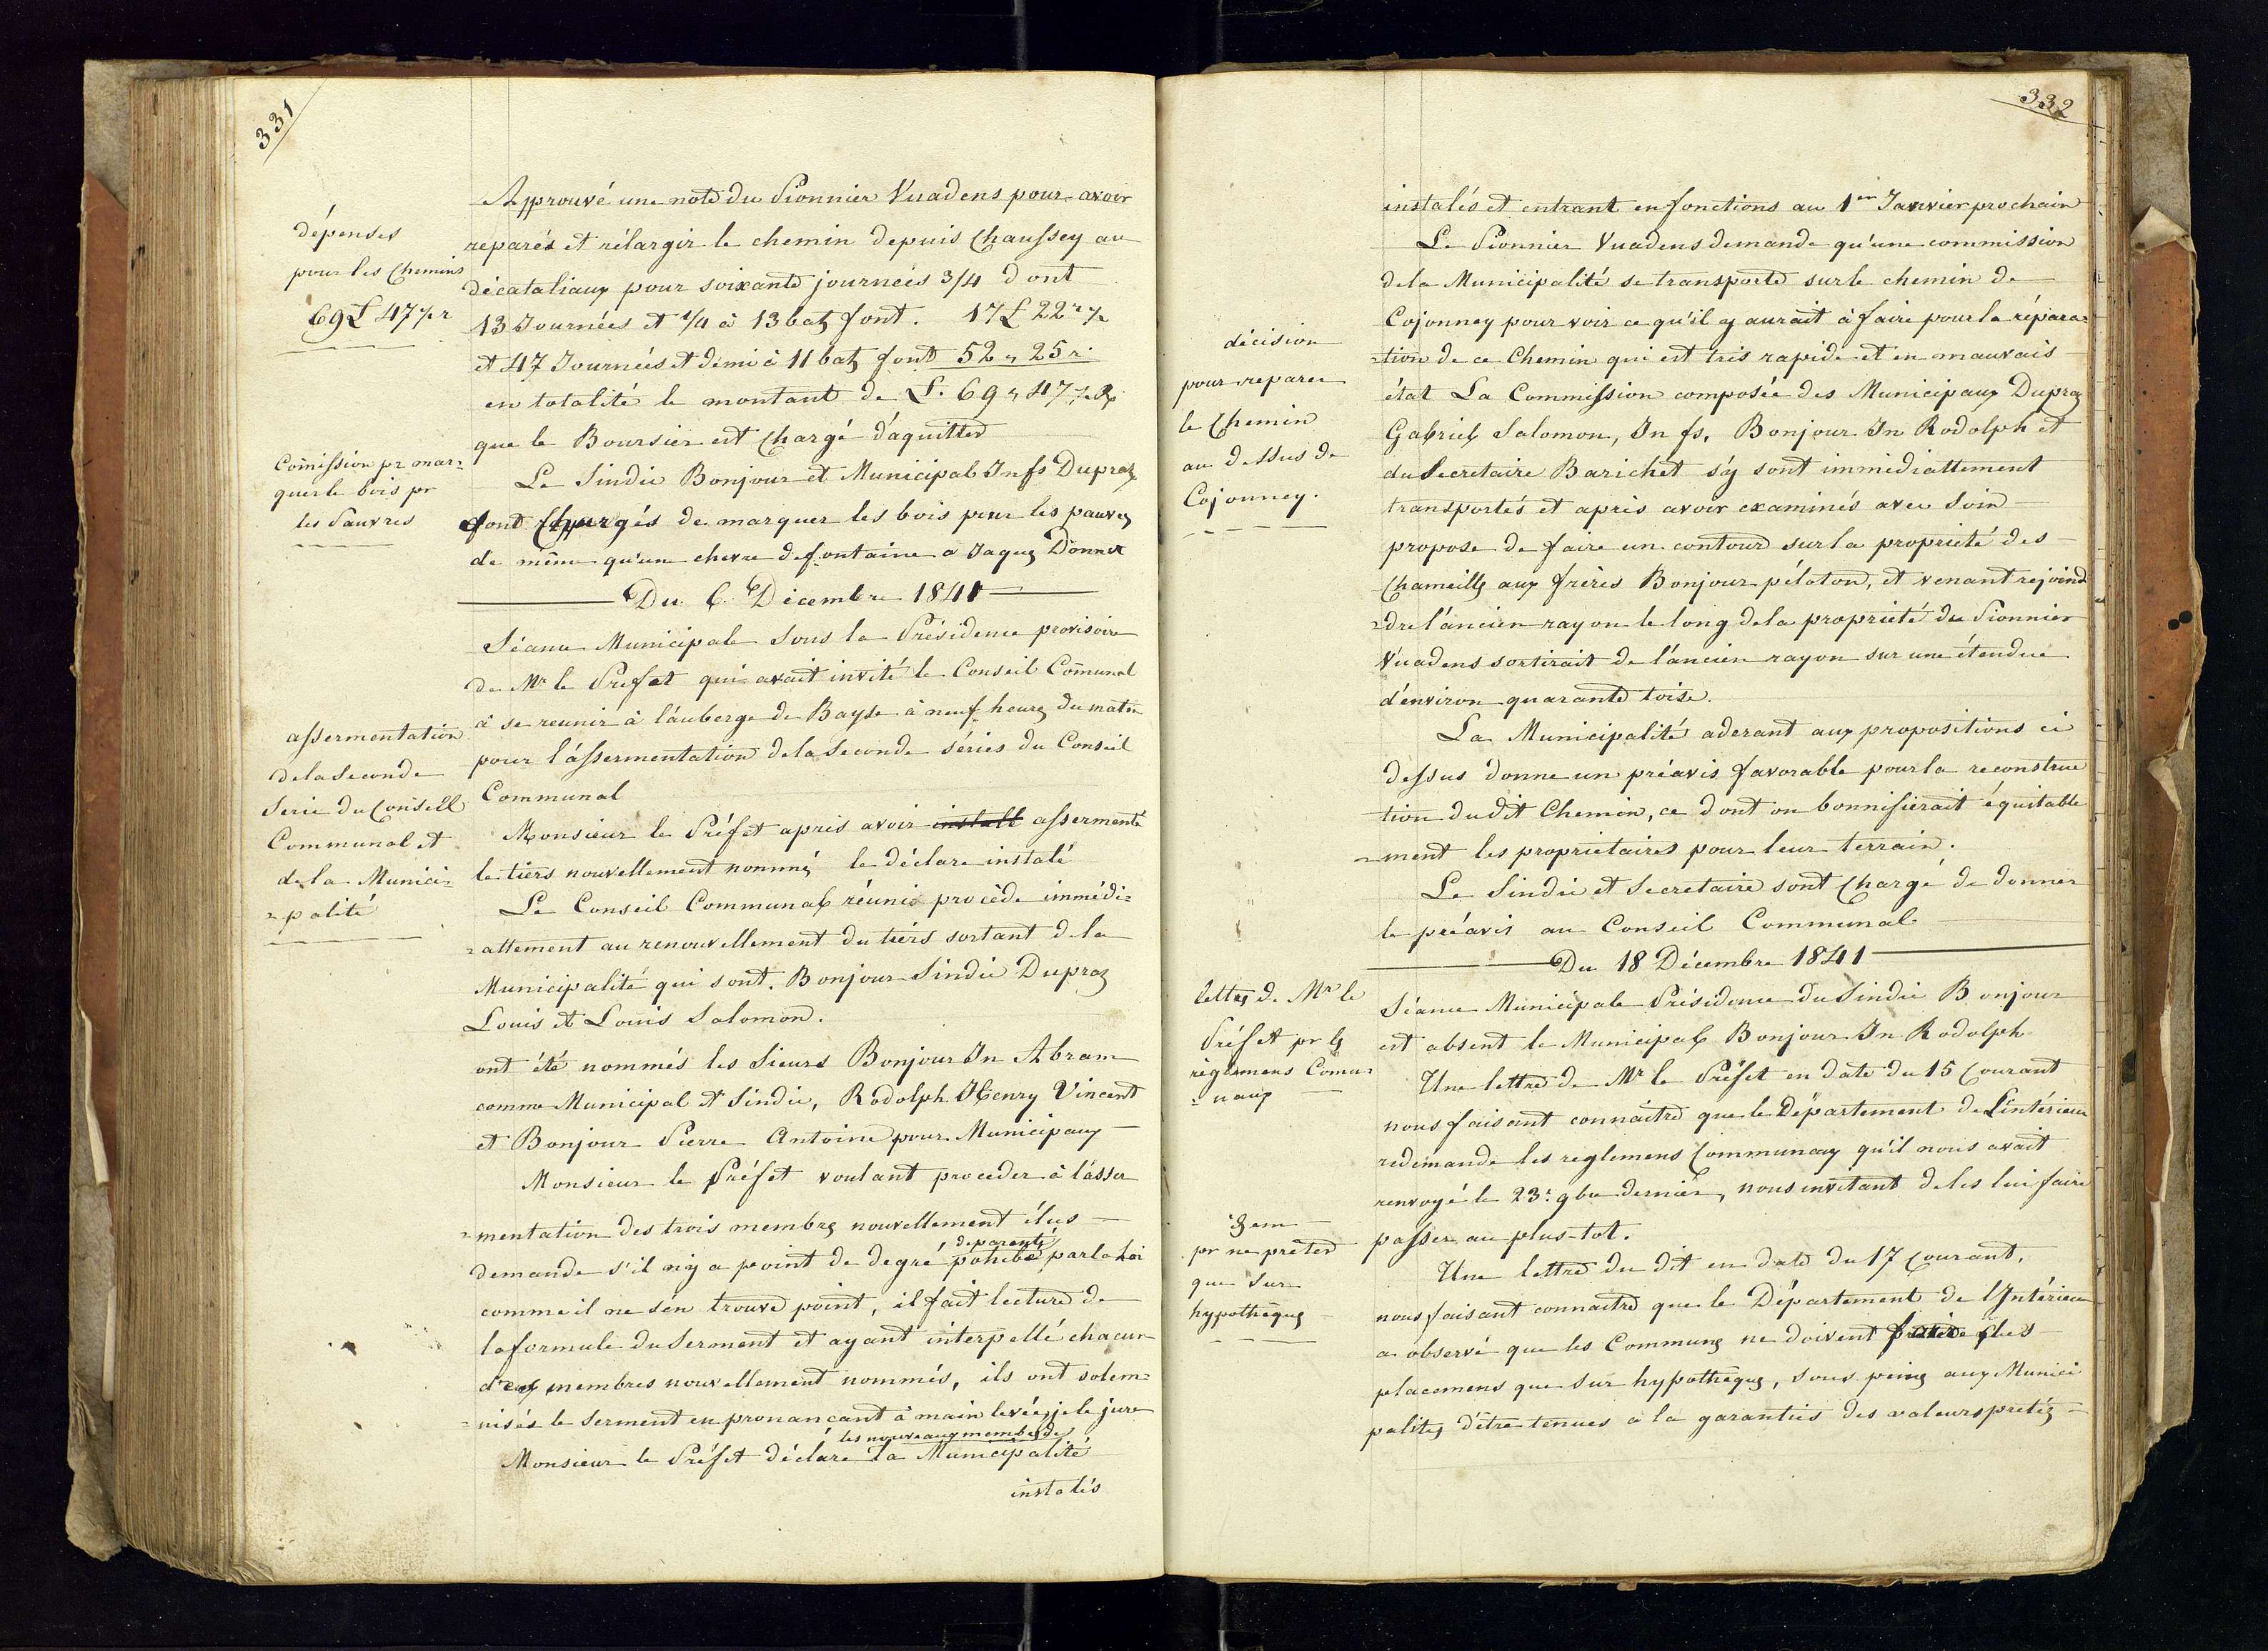 331
dépenses
pour les Chemins
69 £ 47 ½ r
Commission pr mar=
quer le bois pr
les Pauvres
assermentation
de la Seconde
Serie du Conseil
Communal et
de la Munici=
=palité
Approuvé une note du Pionnier Vuadens pour avoir
reparés et rélargir le chemin depuis Chaussey au
décataliaux pour soixante journées 3/4 dont
13 Journées et 1/4 à 13 batz font. 17 £ 22 r ½
et 47 Journées et demi à 11 batz font 52 " 25 r.
en totalité le montant de L. 69 " 47 ½ r
que le Boursier est Chargé d'aquitter
Le Sindic Bonjour et Municipal Jn fs Dupraz
sont Chargés de marquer les bois pour les pauvres
de même qu'une chevre de fontaine a Jaques Donnet
Du 6. Décembre 1841
Séance Municipale Sous la Présidence provisoire
de Mr le Prefet qui avait invité le Conseil Communal
à se reunir à l'auberge de Bayse à neuf heures du matin
pour l'assermentation de la Seconde séries du Conseil
Communal
Monsieur le Préfet apris avoir install assermenté
le tiers nouvellement nommé le déclare instalé
Le Conseil Communal réunis procède immédi=
=attement au renouvellement du tiers sortant de la
Municipalité qui sont. Bonjour Sindic Dupraz
Louis et Louis Salomon.
ont été nommés les Sieurs Bonjour Jn Abram
comme Municipal et Sindic, Rodolph Henry Vincent
et Bonjour Pierre Antoine pour Municipaux
Monsieur le Préfet voulant proceder à l'asser
=mentation des trois membres nouvellement élus
de parenté
demande s'il n'y a point de degré pohibé par la Loi
comme il ne s'en trouve point, il fait lecture de
la formule du Serment et ayant interpellé chacun
d'eux membres nouvellement nommés, ils ont solem=
=nisés le Serment en pronançant à main levée, je le jure
les nouveaux membres de
Monsieur le Préfet déclare la Municipalité
instalés
332
décision
pour reparer
le Chemin
au dessus de
Cojonney.
lettres de Mr le
Préfet pr les
règlemens Comu=
=naux
Idem
pr ne prèter
que Sur
hypothèques
instalés et entrant en fonctions au 1er Janvier prochain
Le Pionnier Vuadens demande qu'une commission
de la Municipalité se transporte sur le chemin de
Cojonney pour voir ce qu'il y aurait à faire pour la répara=
=tion de ce Chemin qui est tris rapide et en mauvais
état La Commission composée des Municipaux Dupraz
Gabriel Salomon, Jn fs, Bonjour Jn Rodolph et
du Secretaire Barichet s'y sont immédiattement
transportés et après avoir examinés avec Soin
propose de faire un contour sur la propriété des
Chameilles aux frères Bonjour péloton, et venant rejoind
=dre l'ancien rayon le long de la propriété du Pionnier
Vuadens sortirait de l'ancien rayon sur une étendue
d'environ quarante toise.
La Municipalité aderant aux propositions ci
dessus donne un préavis favorable pour la reconstruc
tion du dit Chemin, ce dont on bonnifierait équitable
=ment les proprietaires pour leur terrain.
Le Sindic et Secretaire sont Chargé de donner
le préavis au Conseil Communal
Du 18 Décembre 1841
Séance Municipale Présidence du Sindic Bonjour
est absent le Municipal Bonjour Jn Rodolph
Une lettre de Mr le Préfet en date du 15 Courant
nous faisant connaitre que le Département de L'intérieur
redemande les reglemens Communaux qu'il nous avait
renvoyé le 23r. 9bre dernier, nous invitant de les lui faire
passer au plus-tot.
Une lettre du dit en date du 17 Courant,
nous faisant connaitre que le Département de l'Intérieur
a observé que les Communes ne doivent faire plus
placemens que sur hypothèques, sous peine aux Munici
palités d'être tenues à la garanties des valeurs prétés